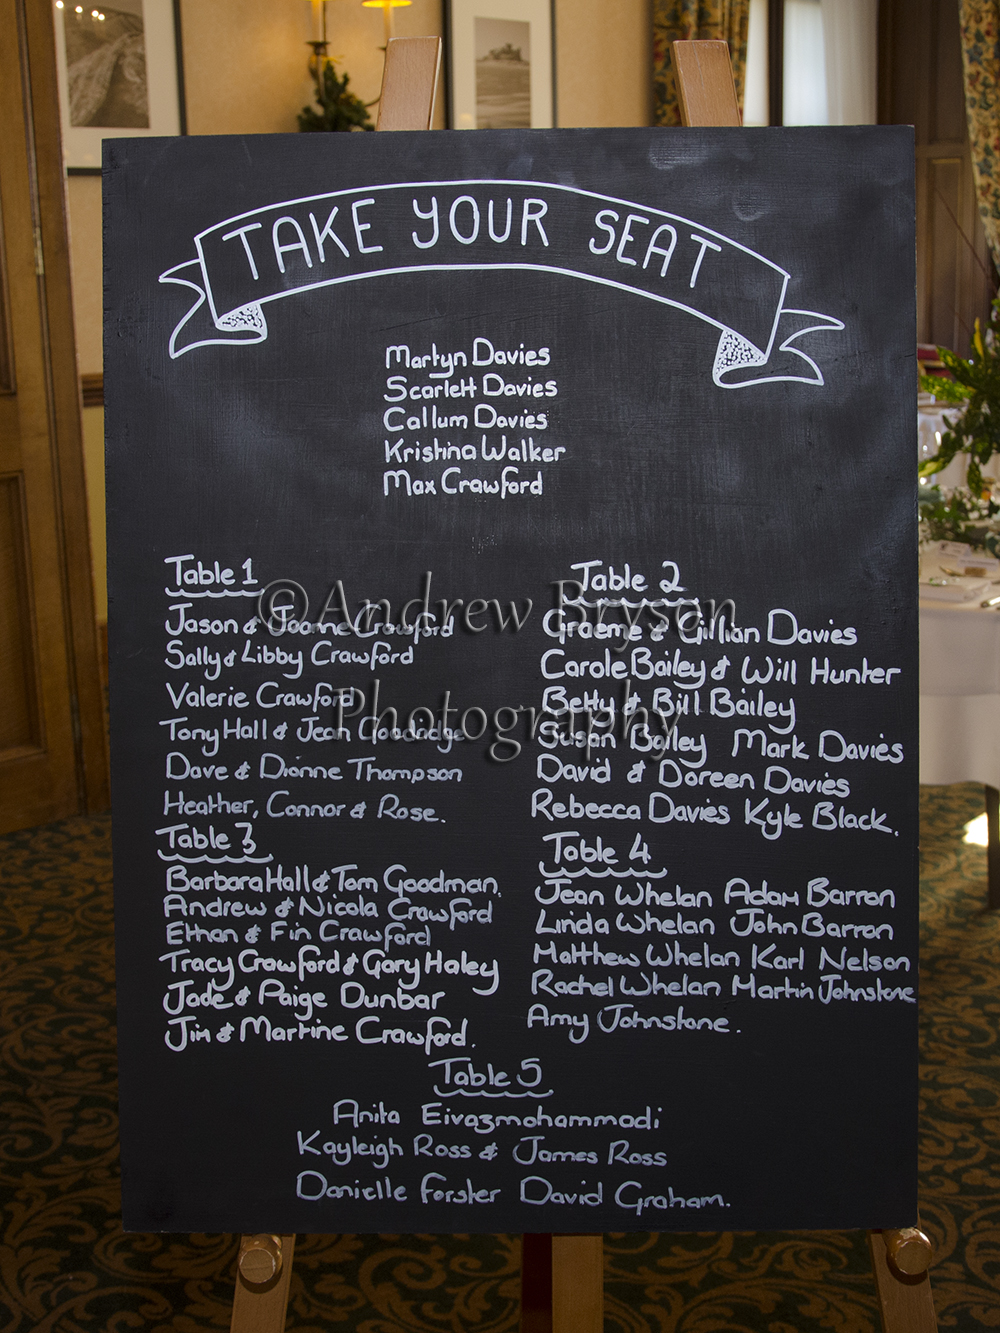 TAKE YOUR SEAT
Martyn Davies
Scarlett Davies
Callum Davies
Kristina Walker
Max Crawford
Table 1
Jason & Joanne Crawford
Sally & Libby Crawford
Valerie Crawford
Tony Hall & Jean Goodridge
Dave & Dianne Thompson
Heather, Connor & Rose.
Table 2
Graeme & Gillian Davies
Carole Bailey & Will Hunter
Betty & Bill Bailey
Susan Bailey Mark Davies
David & Doreen Davies
Rebecca Davies Kyle Black.
©Andrew Bryson
Photography
Table 3
Barbara Hall & Tom Goodman.
Andrew & Nicola Crawford
Ethan & Fin Crawford
Tracy Crawford & Gary Haley
Jade & Paige Dunbar
Jim & Martine Crawford.
Table 4
Jean Whelan Adam Barron
Linda Whelan John Barron
Matthew Whelan Karl Nelson
Rachel Whelan Martin Johnstone
Amy Johnstone.
Table 5
Anita Eivazmohammadi
Kayleigh Ross & James Ross
Danielle Forster David Graham.